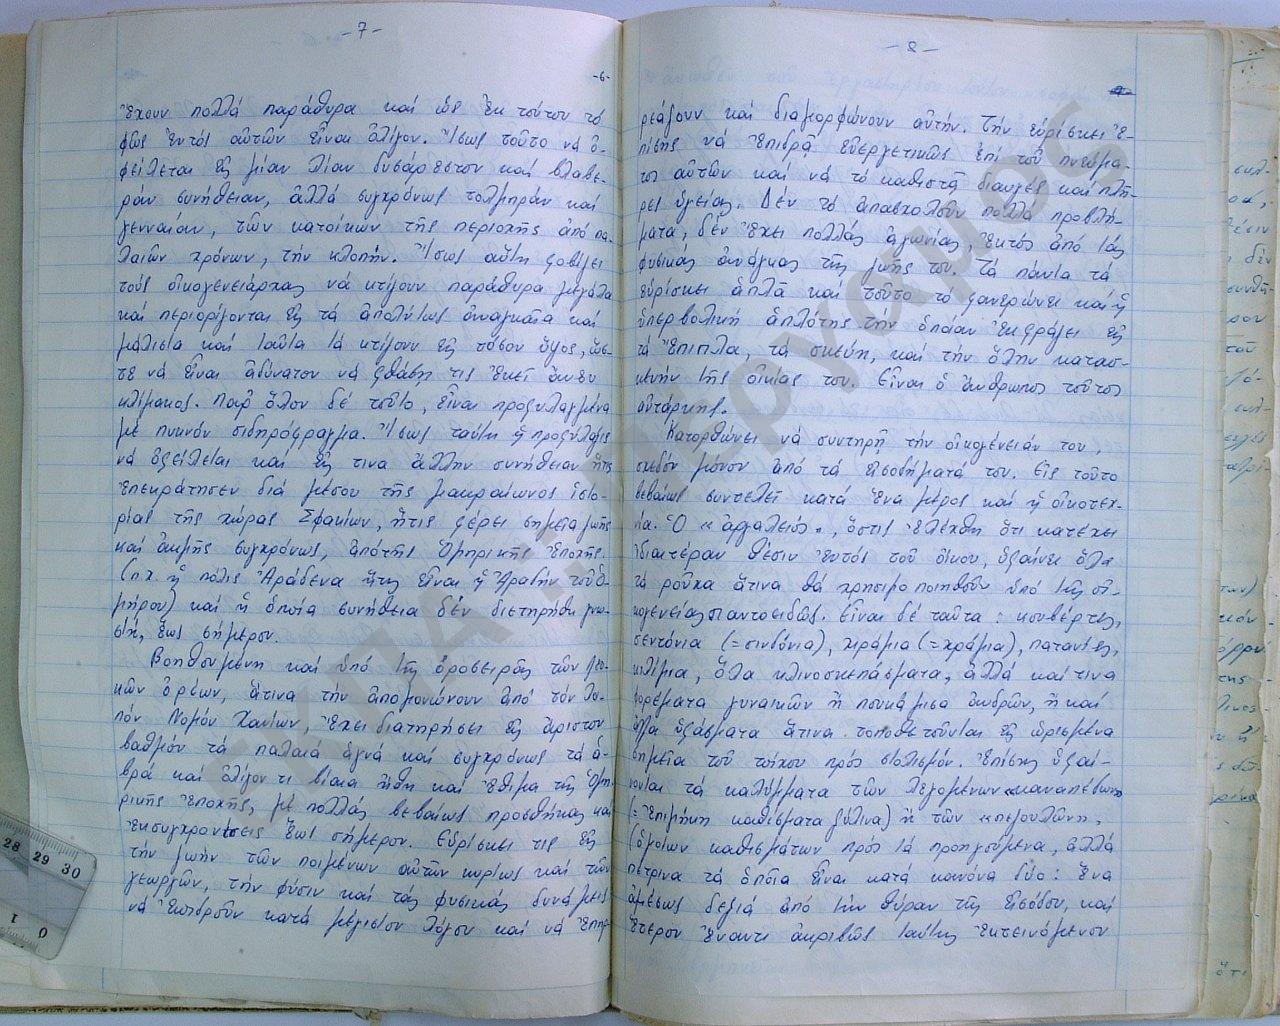 -7-
-6-
ἔχουν πολλά παράθυρα καί ὡς ἐκ τούτου τό
φῶς ἐντός αὐτῶν εἶναι ὀλίγον. Ἴσως τοῦτο νά ὀ-
φείλεται εἰς μίαν λίαν δυσάρεστον καί βλαβε-
ράν συνήθειαν, ἀλλά συγχρόνως τολμηράν καί
γενναίαν, τῶν κατοίκων τῆς περιοχῆς ἀπό πα-
λαιῶν χρόνων, τήν κλοπήν. Ἴσως αὕτη φοβίζει
τούς οἰκογενειάρχας νά κτίζουν παράθυρα μεγάλα
καί περιορίζονται εἰς τά ἀπολύτως ἀναγκαῖα καί
μάλιστα καί ταῦτα τά κτίζουν εἰς τόσον ὕψος, ὥσ-
τε νά εἶναι ἀδύνατον νά φθάσῃ τις ἐκεῖ ἄνευ
κλίμακος. Παρ' ὅλον δέ τοῦτο, εἶναι προφυλαγμένα
μέ πυκνόν σιδηρόφραγμα. Ἴσως ταύτη ἡ προφύλαξις
νά ὀφείλεται καί εἰς τινα ἄλλην συνήθειαν ἥτις
ἐπεκράτησεν διά μέσου τῆς μακραίωνος ἱστο-
ρίας τῆς χώρας Σφακίων, ἥτις φέρει σημεῖα ζωῆς
καί ἀκμῆς συγχρόνως, ἀπό τῆς Ὁμηρικῆς ἐποχῆς.
(π.χ. ἡ πόλις Ἀράδενα ἥτις εἶναι ἡ Ἀραδήν τοῦ Ὁ-
μήρου) καί ἡ ὁποία συνήθεια δέν διετηρήθη
ἕως σήμερον.
Βοηθουμένη καί ὑπό τῆς ὀροσειρᾶς τῶν Λευ-
κῶν ὀρέων, ἅτινα τήν ἀπομονώνουν ἀπό τόν λοι-
πόν Νομόν Χανίων, ἔχει διατηρήσει εἰς ἄριστον
βαθμόν τά παλαιά ἁγνά καί συγχρόνως τά ἁ-
βρά καί ὀλίγον τι βίαια ἤθη καί ἔθιμα τῆς Ὁμη-
ρικῆς ἐποχῆς, μέ πολλάς βεβαίως προσθήκας καί
ἐκσυγχρονίσεις ἕως σήμερον. Εὑρίσκει τις εἰς
τήν ζωήν τῶν ποιμένων αὐτῶν κυρίως καί τῶν
γεωργῶν, τήν φύσιν καί τάς φυσικάς δυνάμεις
νά ἐπιδροῦν κατά μέγιστον λόγον καί νά ἐπηρ-
-8-
ρεάζουν καί διαμορφώνουν αὐτήν. Τήν εὑρίσκει ἐ-
πίσης νά ἐπιδρᾷ εὐεργετικῶς ἐπί τοῦ πνεύμα-
τος αὐτῶν καί νά τό καθιστᾷ διαυγές καί πλῆ-
ρες ὑγείας. Δέν τό ἀπασχολοῦν πολλά προβλή-
ματα, δέν ἔχει πολλάς ἀγωνίας, ἐκτός ἀπό τάς
φυσικάς ἀνάγκας τῆς ζωῆς του. Τά πάντα τά
εὑρίσκει ἁπλᾶ καί τοῦτο τό φανερώνει καί ἡ
ὑπερβολική ἁπλότης τήν ὁποίαν ἐκφράζει εἰς
τά ἔπιπλα, τά σκεύη, καί τήν ὅλην κατασ-
κευήν τῆς οἰκίας του. Εἶναι ὁ ἄνθρωπος τοῦτος
αὐτάρκης.
Κατορθώνει νά συντηρῇ τήν οἰκογένειάν του,
σχεδόν μόνον ἀπό τά εἰσοδήματά του. Εἰς τοῦτο
βεβαίως συντελεῖ κατά ἕνα μέρος καί ἡ οἰκοτεχ-
νία. Ὁ «ἀργαλειός», ὅστις ἐλέχθη ὅτι κατέχει
ἰδιαιτέραν θέσιν ἐντός τοῦ οἴκου, ὑφαίνει ὅλα
τά ροῦχα ἅτινα θά χρησιμοποιηθοῦν ὑπό τῆς οἰ-
κογενείας παντοειδῶς. Εἶναι δέ ταῦτα: κουβέρτες,
σεντόνια (=σινδόνια), χράμια (=χράμια), πατανίες,
κιλίμια, ὅλα κλινοσκεπάσματα, ἀλλά καί τινα
φορέματα γυναικῶν ἤ πουκάμισα ἀνδρῶν, ἤ καί
ἄλλα ὑφάσματα ἅτινα τοποθετοῦνται εἰς ὡρισμένα
σημεῖα τοῦ τοίχου πρός στολισμόν. Ἐπίσης ὑφαί-
νονται τά καλύμματα τῶν λεγομένων «καναπέδων»
(=ἐπιμήκη καθίσματα ξύλινα) ἤ τῶν «πεζουλῶν»,
(ὁμοίων καθισμάτων πρός τά προηγούμενα, ἀλλά
πέτρινα τά ὁποῖα εἶναι κατά κανόνα δύο: ἕνα
ἀμέσως δεξιά ἀπό τήν θύραν τῆς εἰσόδου, καί
ἕτερον ἔναντι ἀκριβῶς ταύτης ἐκτεινόμενον
28 29 30
1 0
ΕΚΠΑ :: Πέργαμος